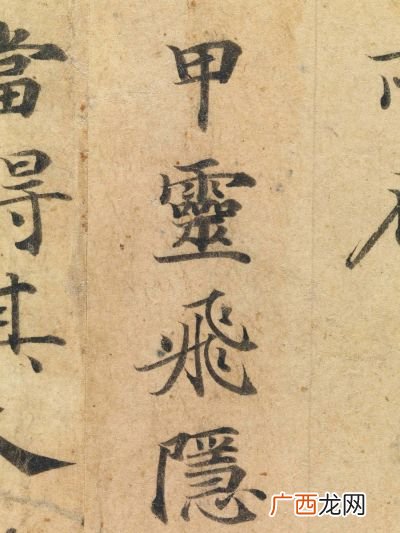 甲靈飛隱
當得其人
广西龙网